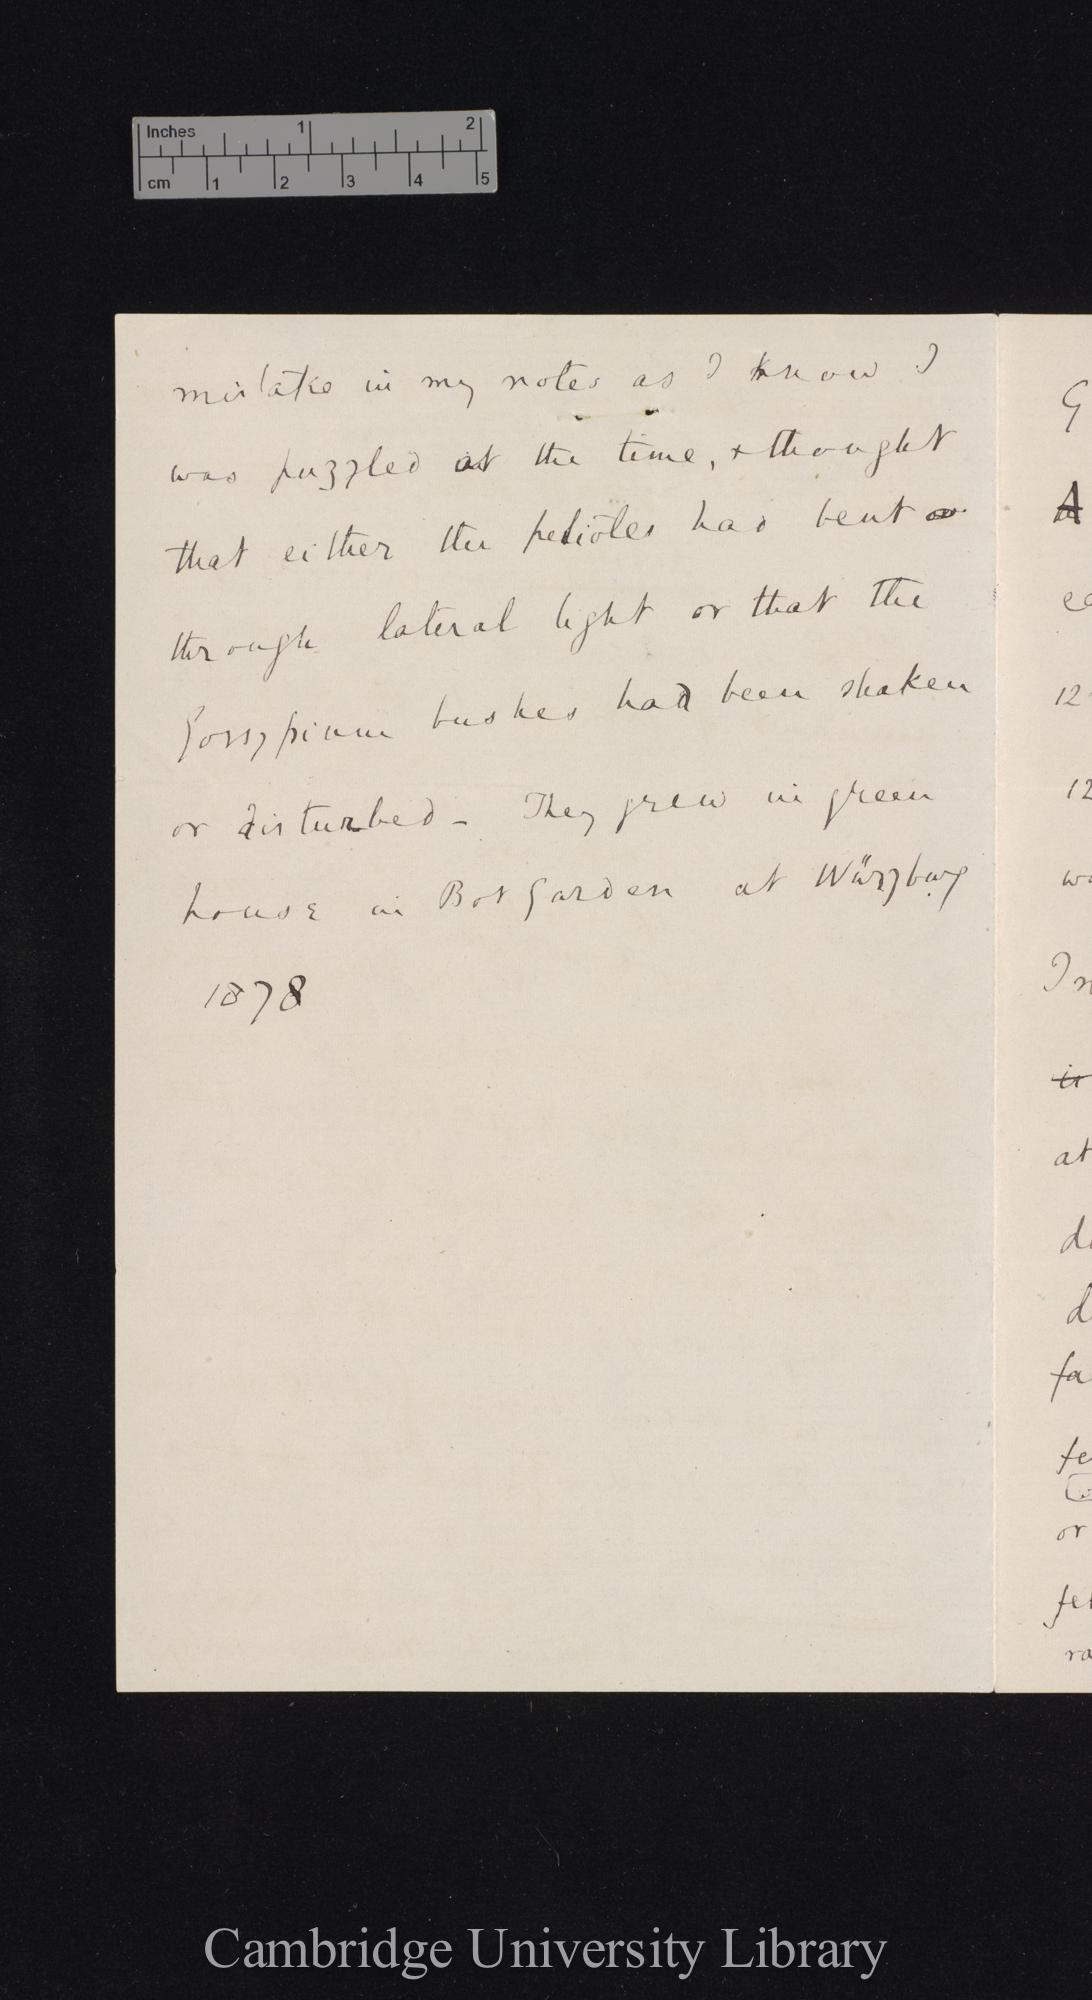 Inches 1 2
cm 1 2 3 4 5
mistake in my notes as I know I
was puzzled at the time, & thought
that either the petioles had bent
through lateral light or that the
Gossypium bushes had been shaken
or disturbed – They grew in green
house in Bot Garden at Würzburg
1878
G
A
12
12
In
at
fa
or
Cambridge University Library